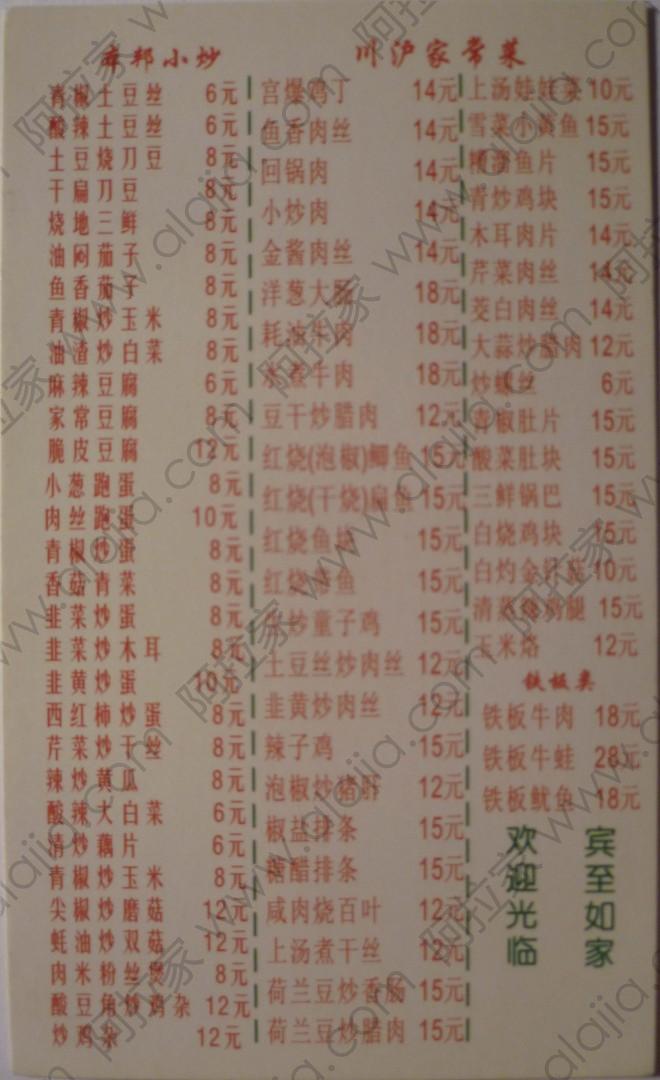 小炒
青椒土豆丝 6元
酸辣土豆丝 6元
土豆烧刀豆 8元
干扁刀豆 8元
烧地三鲜 8元
油闷茄子 8元
鱼香茄子 8元
青椒炒玉米 8元
油渣炒白菜 8元
麻辣豆腐 6元
家常豆腐 8元
脆皮豆腐 12元
小葱跑蛋 8元
肉丝跑蛋 10元
青椒炒蛋 8元
香菇青菜 8元
韭菜炒蛋 8元
韭菜炒木耳 8元
韭黄炒蛋 10元
西红柿炒蛋 8元
芹菜炒干丝 8元
辣炒黄瓜 8元
酸辣大白菜 6元
清炒藕片 6元
青椒炒玉米 8元
尖椒炒磨菇 12元
蚝油炒双菇 12元
肉米粉丝煲 8元
酸豆角炒鸡杂 12元
炒鸡杂 12元
川沪家常菜
宫爆鸡丁 14元
鱼香肉丝 14元
回锅肉 14元
小炒肉 14元
金酱肉丝 14元
洋葱大肠 18元
耗油牛肉 18元
水煮牛肉 18元
豆干炒腊肉 12元
红烧(泡椒)鲫鱼 15元
红烧(干烧)扁鱼 15元
红烧鱼块 15元
红烧鱼 15元
炒童子鸡 15元
土豆丝炒肉丝 12元
韭黄炒肉丝 12元
辣子鸡 15元
泡椒炒猪肝 12元
椒盐排条 15元
糖醋排条 15元
咸肉烧百叶 12元
上汤煮干丝 12元
荷兰豆炒香肠 15元
荷兰豆炒腊肉 15元
上汤娃娃菜 10元
雪菜小黄鱼 15元
糟溜鱼片 15元
青炒鸡块 15元
木耳肉片 14元
芹菜肉丝 14元
茭白肉丝 14元
大蒜炒腊肉 12元
炒螺丝 6元
青椒肚片 15元
酸菜肚块 15元
三鲜锅巴 15元
白烧鸡块 15元
白灼金针菇 10元
清蒸鸡腿 15元
玉米烙 12元
铁板类
铁板牛肉 18元
铁板牛蛙 28元
铁板鱿鱼 18元
宾至如家
欢迎光临
阿拉家 www.alajia.com